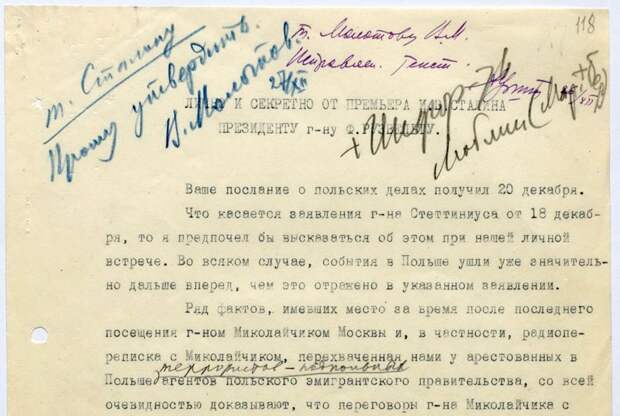 118
т. Сталину
Прошу утвердить.
В. Молотов.
27/XII
т. Молотову В.М.
Исправлен. текст.
ЛИЧНО И СЕКРЕТНО ОТ ПРЕМЬЕРА И.В.СТАЛИНА
ПРЕЗИДЕНТУ г-ну Ф.РУЗВЕЛЬТУ.
Ваше послание о польских делах получил 20 декабря.
Что касается заявления г-на Стеттиниуса от 18 декаб-
ря, то я предпочел бы высказаться об этом при нашей личной
встрече. Во всяком случае, события в Польше ушли уже значитель-
но дальше вперед, чем это отражено в указанном заявлении.
Ряд фактов, имевших место за время после последнего
посещения г-ном Миколайчиком Москвы и, в частности, радиопе-
реписка с Миколайчиком, перехваченная нами у арестованных в
террористов-подпольных
Польше агентов польского эмигрантского правительства, со всей
очевидностью доказывают, что переговоры г-на Миколайчика с